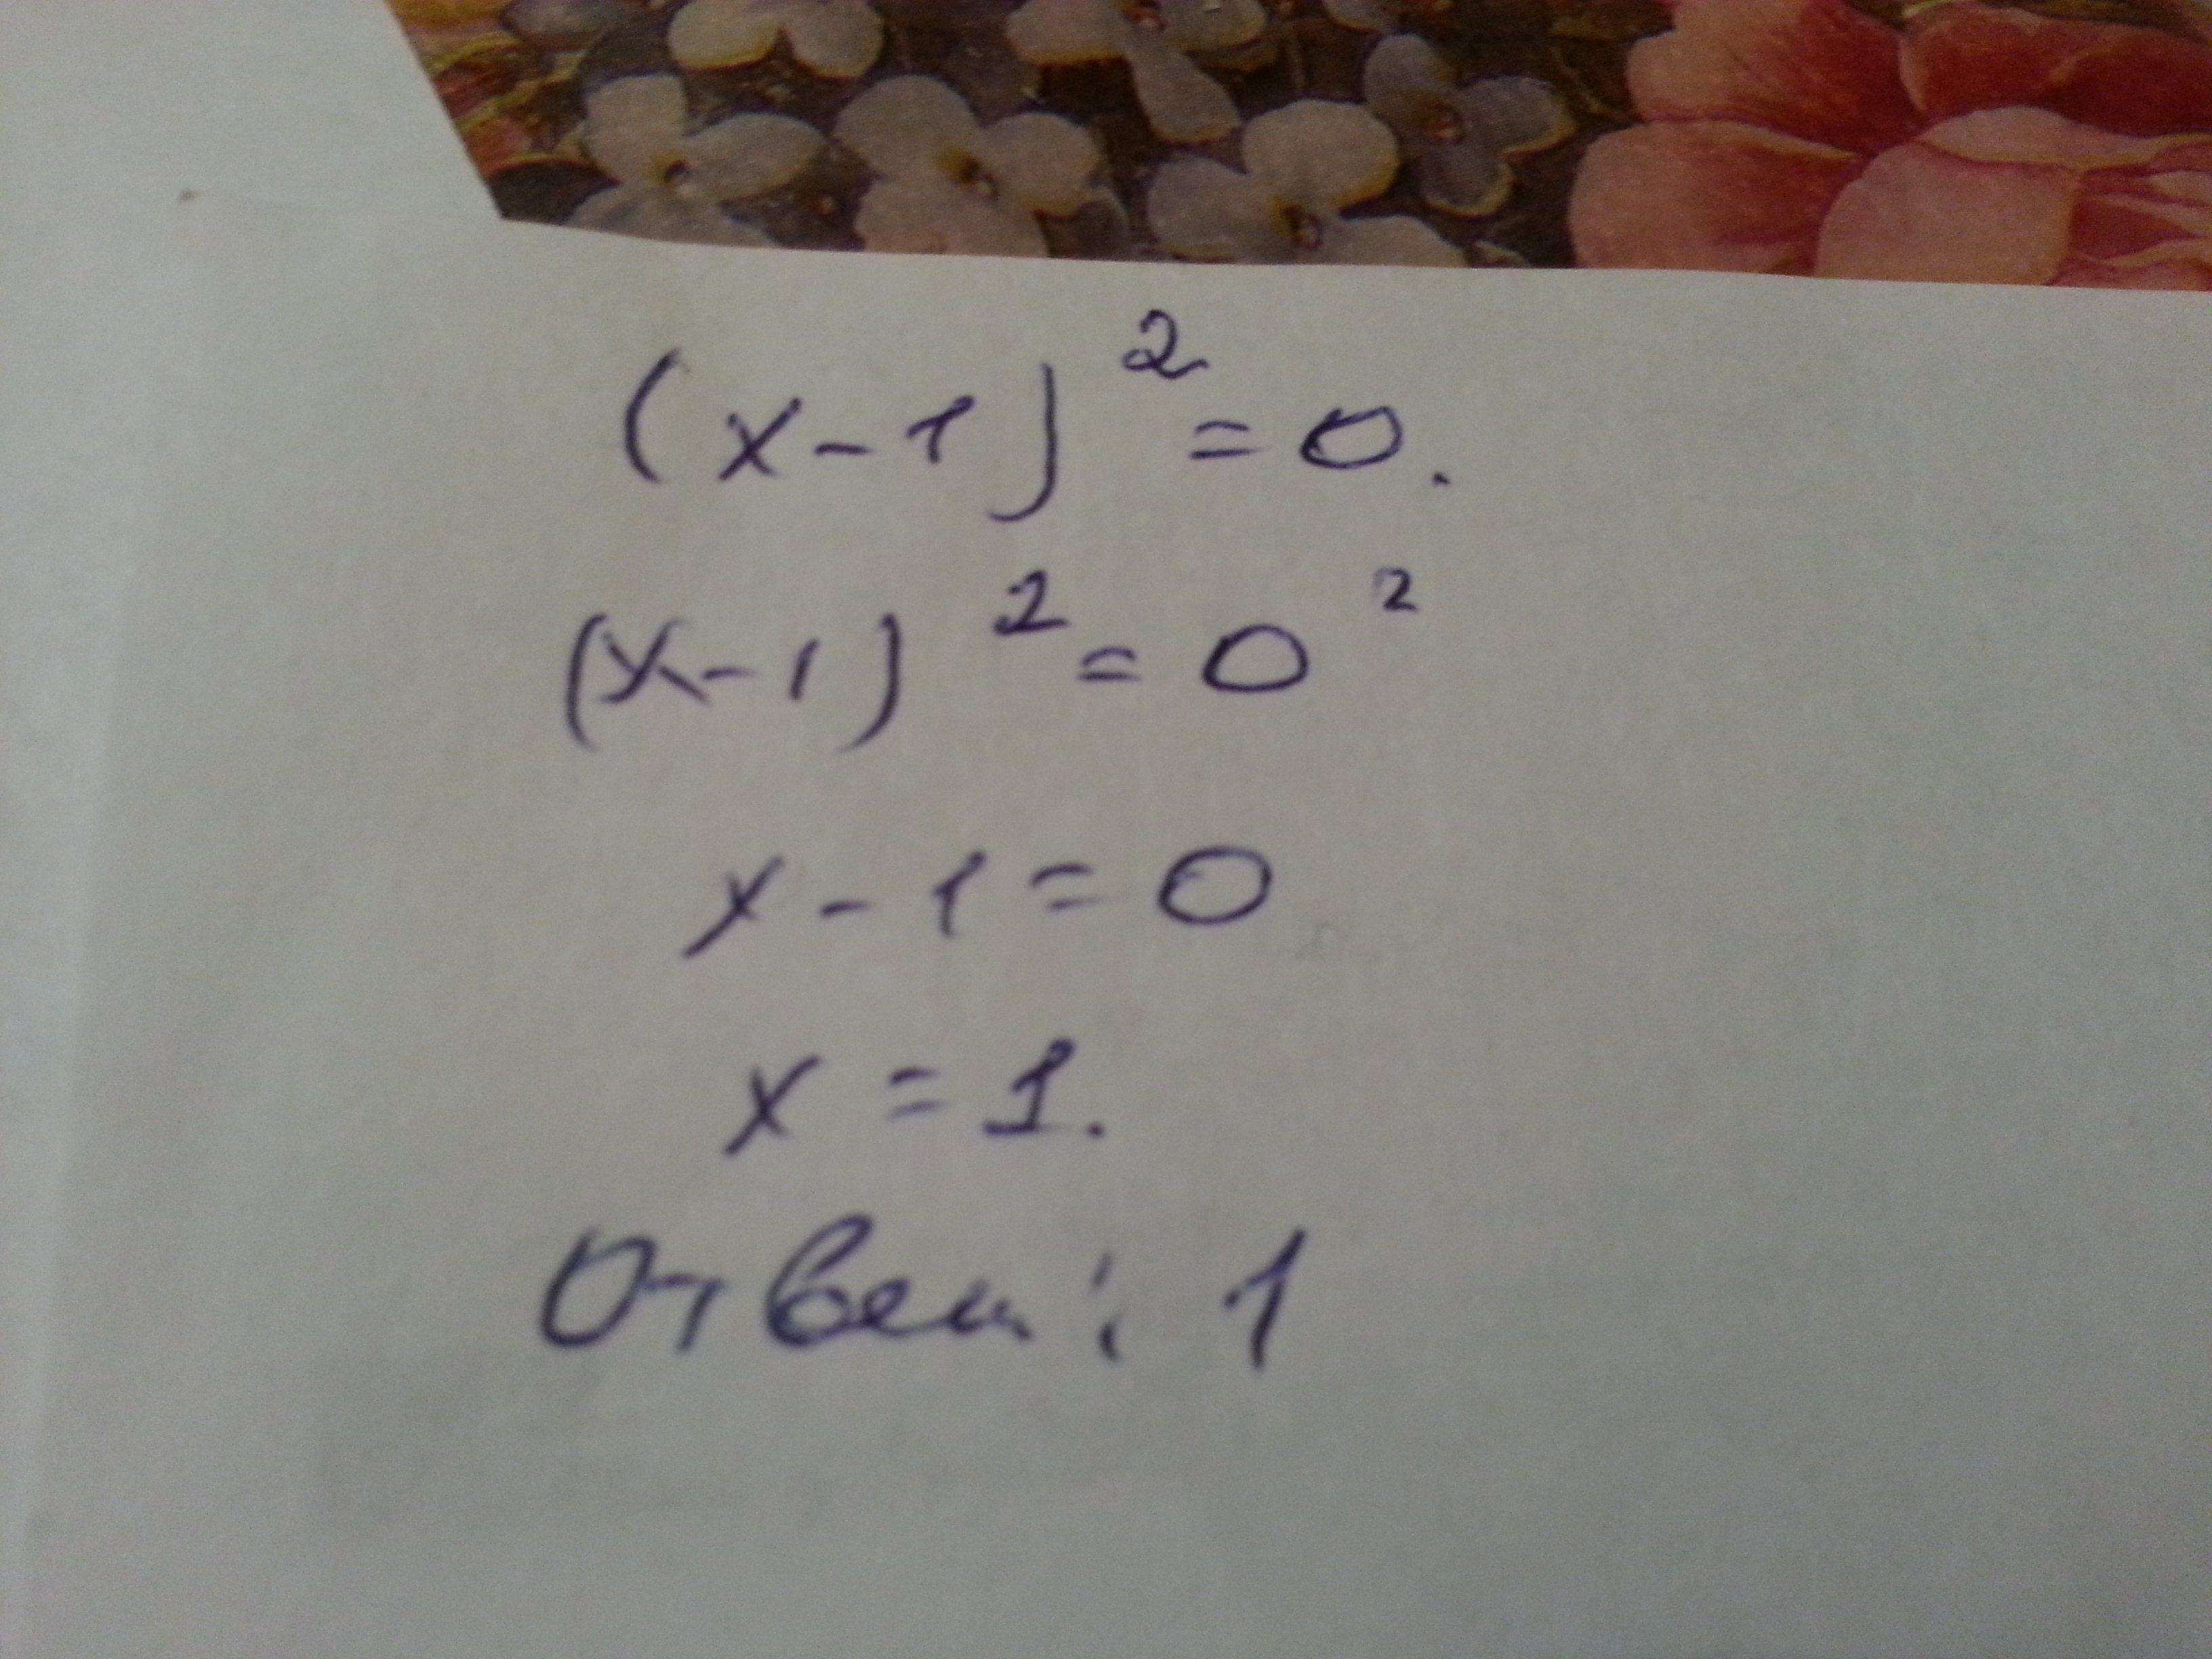 (x-1)² = 0.
(x-1)² = 0²
x - 1 = 0
x = 1.
Ответ: 1